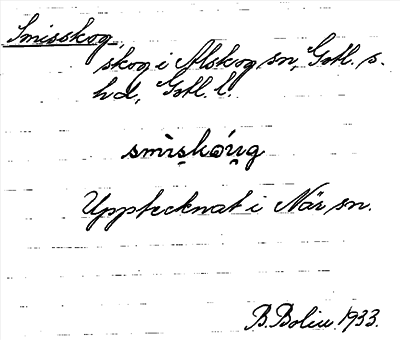 Smisskog,
skog i Alskog sn, Gotl. s.
hd, Gotl. l.
smìskǫ́u̯g
Upptecknat i När sn.
B. Bolin. 1933.